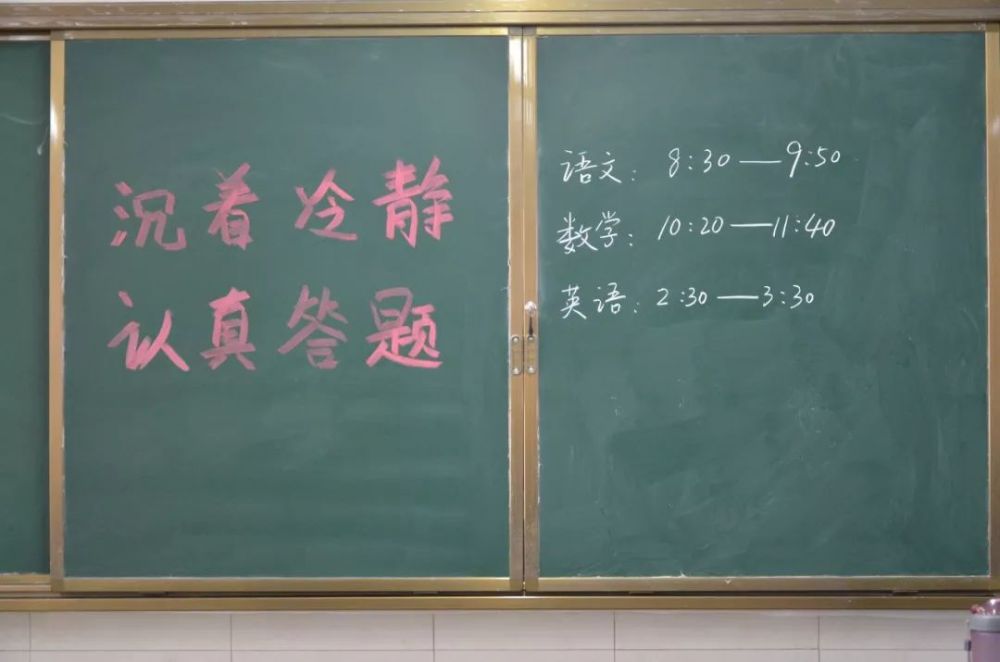 沉着冷静
认真答题
语文：8:30—9:50
数学：10:20—11:40
英语：2:30—3:30